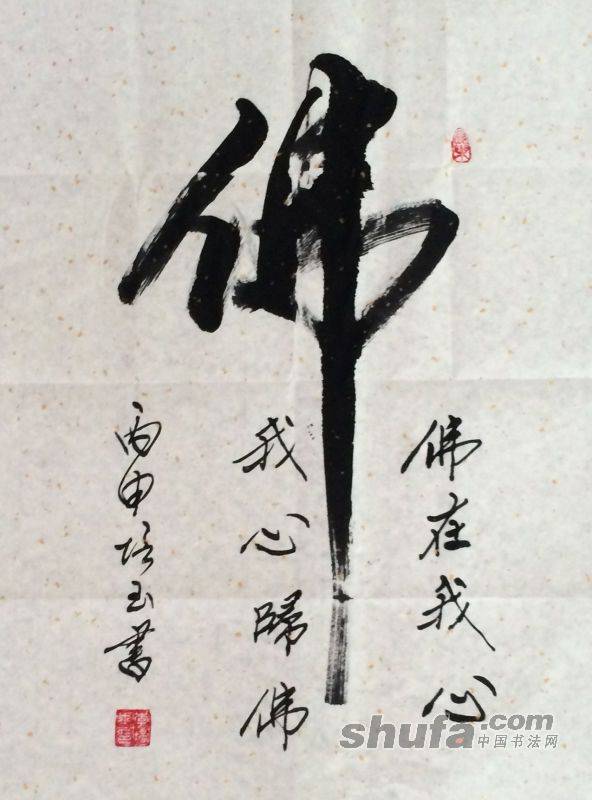 佛
佛在我心
我心歸佛
丙申培玉書
shufa.com
中国书法网